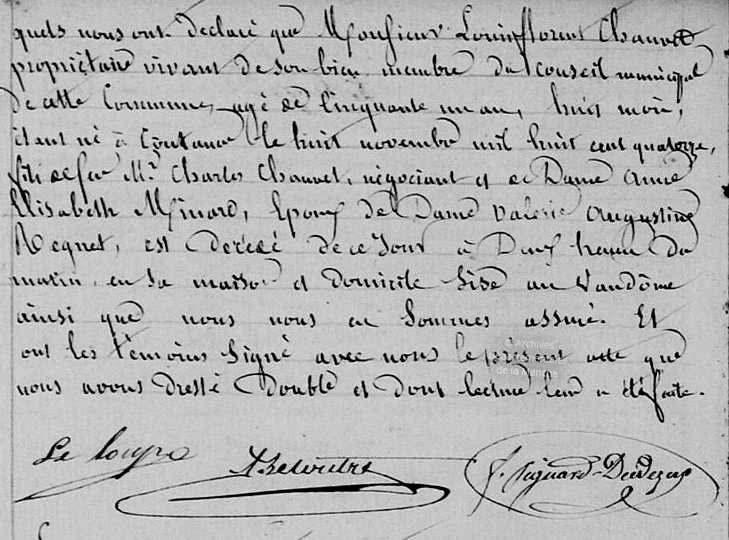 quels nous ont declaré que Monsieur Louis florent Chauvet
propriétaire vivant de son bien, membre du Conseil municipal
de cette Commune, agé de Cinquante un an, huit mois,
étant né à Coutances le huit novembre mil huit cent quatorze,
fils de feu Mr. Charles Chauvet, négociant et de Dame anne
Elisabeth Minard, Epoux de Dame Valérie augustine
Regnet, est décédé de ce jour à Deux heures du
matin, en sa maison et domicile Sise au Vandôme
ainsi que nous nous en Sommes assuré. Et
ont les témoins Signé avec nous le présent acte que
nous avons dressé Double et dont lecture leur a été faite.
© Archives
de la Manche
Le Loup